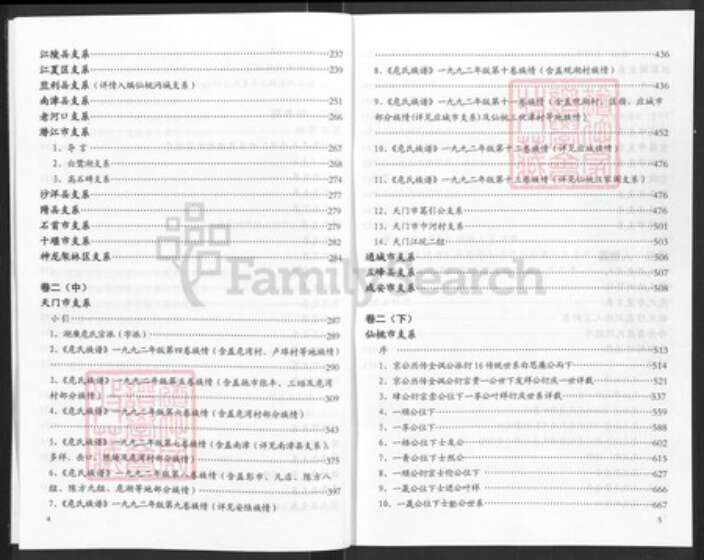 江陵县支系……237
江夏区支系……239
监利县支系(详情入编仙桃沔城支系)
南漳县支系……251
老河口支系……266
潜江市支系
1、导言……267
2、白鹭湖支系……268
3、高石碑支系……274
沙洋县支系……277
隋县支系……279
石首市支系……279
十堰市支系……282
神龙架林区支系……284
卷二(中)
天门市支系
小引……287
1、湖广危氏宗派(字派)……289
2、《危氏族谱》一九九二年版第四卷族情(含盖危湾村、卢埠村等地族情)
……290
3、《危氏族谱》一九九二年版第五卷族情(含盖拖市张丰、三结及危湾
村部分族情)……309
4、《危氏族谱》一九九二年版第六卷族情(含盖危湾村部分族情)
……343
5、《危氏族谱》一九九二年版第七卷族情(含盖南漳(详见南漳县支系)、
多祥、岳口、及危湾村部分族情)……375
6、《危氏族谱》一九九二年版第八卷族情(含盖彭市、凡店、陈方八
组、陈方九组、危湖等地部分族情)……397
7、《危氏族谱》一九九二年版第九卷族情(详见安陆族情)
4
……436
8、《危氏族谱》一九九二年版第十卷族情(含盖观湖村族情)
……436
9、《危氏族谱》一九九二年版第十一卷族情(含盖观湖村、应城市
部分族情(详见应城市支系)及仙桃三伏潭村等地族情)
……452
10、《危氏族谱》一九九二年版第十二卷族情(详见应城族情)
……476
11、《危氏族谱》一九九二年版第十三卷族情(详见仙桃江家阁支系)
……476
12、天门市蒿引公支系……476
13、天门市中河村支系……501
14、天门江皖二组……503
通城市支系……506
五峰县支系……507
咸安市支系……508
卷二(下)
仙桃市支系
序……513
1、京公历传全讽公派衍16传统世系自思廉公而下……514
2、京公历传全讽公衍宣贵一公世下发祥分衍庆一世详载……521
3、肆公衍宣贵公位下一享公叶祥衍庆世系详载……537
4、一顺公位下……559
5、一享公位下……588
6、一格公位下士良公……602
7、一贵公位下士然公……615
8、一顺公衍宣士伦公位下……627
9、一晟公位下士进公叶祥……666
10、一晟公位下士能公世系……667
5
FamilySearch